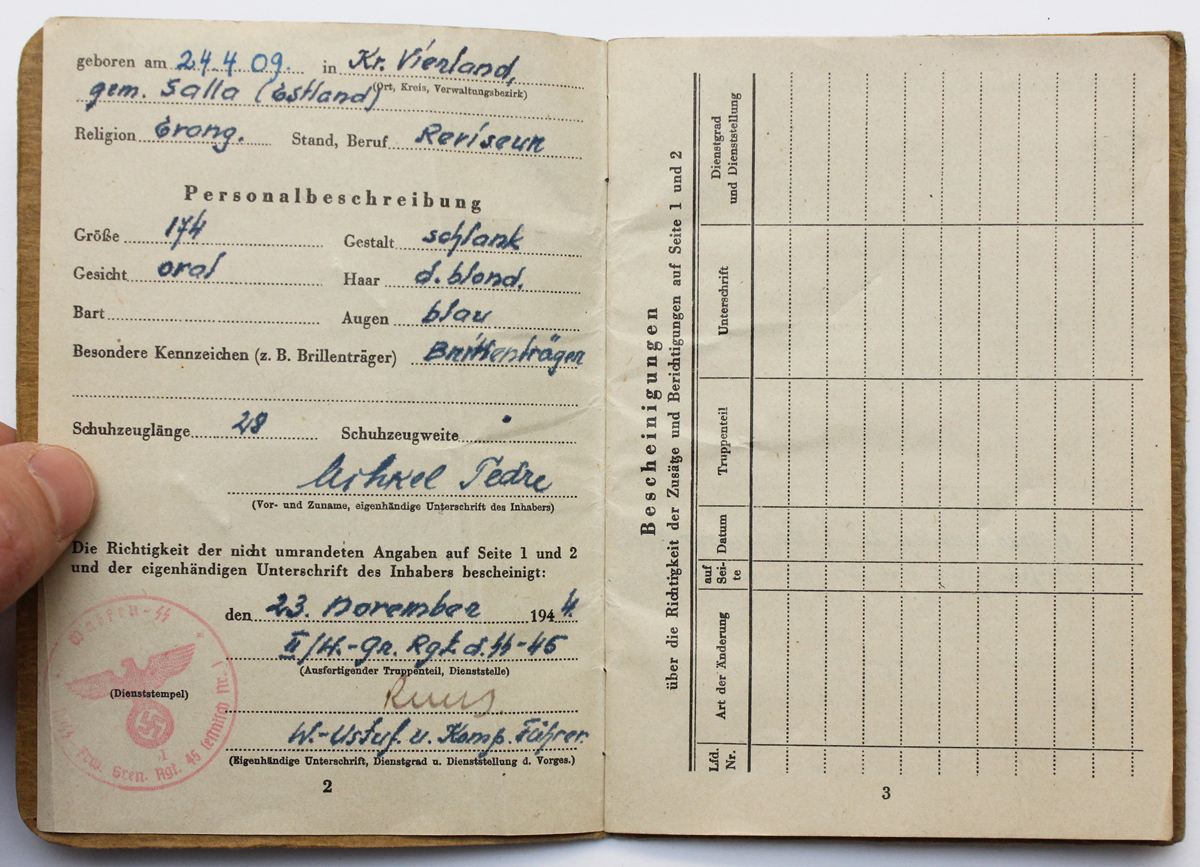 geboren am 24.4.09. in Kr. Vierland,
gem. Salla (Estland) (Ort, Kreis, Verwaltungsbezirk)
Religion Evang. Stand, Beruf Reviseur
Personalbeschreibung
Größe 174 Gestalt schlank
Gesicht oval Haar d. blond.
Bart Augen blau
Besondere Kennzeichen (z. B. Brillenträger) Brillenträger
Schuhzeuglänge 28 Schuhzeugweite
Mihkel Pedre
(Vor- und Zuname, eigenhändige Unterschrift des Inhabers)
Die Richtigkeit der nicht umrandeten Angaben auf Seite 1 und 2
und der eigenhändigen Unterschrift des Inhabers bescheinigt:
den 23. November 1944.
II/W.-Gr. Rgt. d. SS-45
(Ausfertigender Truppenteil, Dienststelle)
(Dienststempel)
W.-Ustuf. u. Komp. Führer
(Eigenhändige Unterschrift, Dienstgrad u. Dienststellung d. Vorges.)
2
Waffen-SS
SS-Frw. Gren. Rgt. 45 (estnisch Nr. 1
Bescheinigungen
über die Richtigkeit der Zusätze und Berichtigungen auf Seite 1 und 2
Lfd. Nr.
Art der Änderung
auf Sei-
te
Datum
Truppenteil
Unterschrift
Dienstgrad
und Dienststellung
3